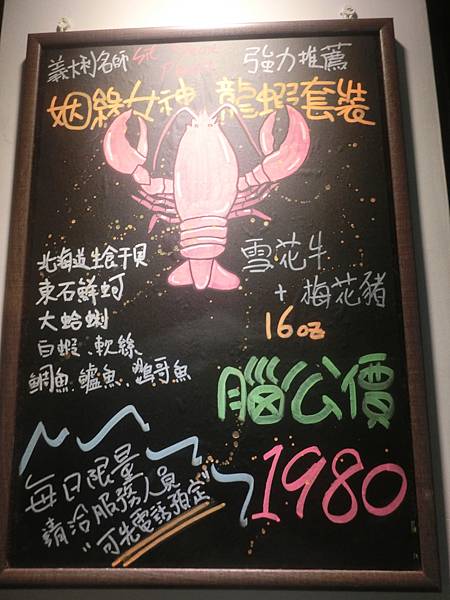 義大利名師 強力推薦
姻緣女神 龍蝦套裝
北海道生食干貝
東石鮮蚵
大蛤蜊
白蝦、軟絲
鯛魚、鱸魚、鸚哥魚
雪花牛
+ 梅花豬
16oz
腦公價
1980
每日限量
請洽服務人員
"可先電話預定"